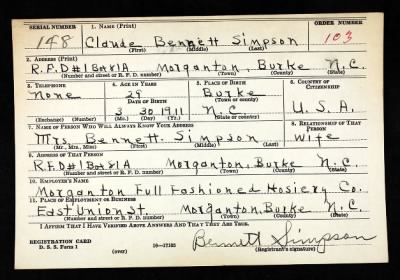 SERIAL NUMBER 1. NAME (Print) ORDER NUMBER
148 Claude Bennett Simpson 103
(First) (Middle) (Last)
2. ADDRESS (Print)
R.F.D#1Box81A Morganton, Burke N.C.
(Number and street or R. F. D. number) (Town) (County) (State)
3. TELEPHONE 4. AGE IN YEARS 5. PLACE OF BIRTH 6. COUNTRY OF CITIZENSHIP
None 29 Burke
DATE OF BIRTH (Town or county)
3 30 1911 N.C. U.S.A.
(Exchange) (Number) (Mo.) (Day) (Yr.) (State or country)
7. NAME OF PERSON WHO WILL ALWAYS KNOW YOUR ADDRESS 8. RELATIONSHIP OF THAT PERSON
Mrs. Bennett Simpson Wife
(Mr., Mrs., Miss) (First) (Middle) (Last)
9. ADDRESS OF THAT PERSON
R.F.D#1Box81A Morganton, Burke N.C.
(Number and street or R. F. D. number) (Town) (County) (State)
10. EMPLOYER'S NAME
Morganton Full Fashioned Hosiery Co.
11. PLACE OF EMPLOYMENT OR BUSINESS
East Union St. Morganton, Burke N.C.
(Number and street or R. F. D. number) (Town) (County) (State)
I AFFIRM THAT I HAVE VERIFIED ABOVE ANSWERS AND THAT THEY ARE TRUE.
REGISTRATION CARD
D. S. S. Form 1 (over) 16—17105 Bennett Simpson
(Registrant's signature)